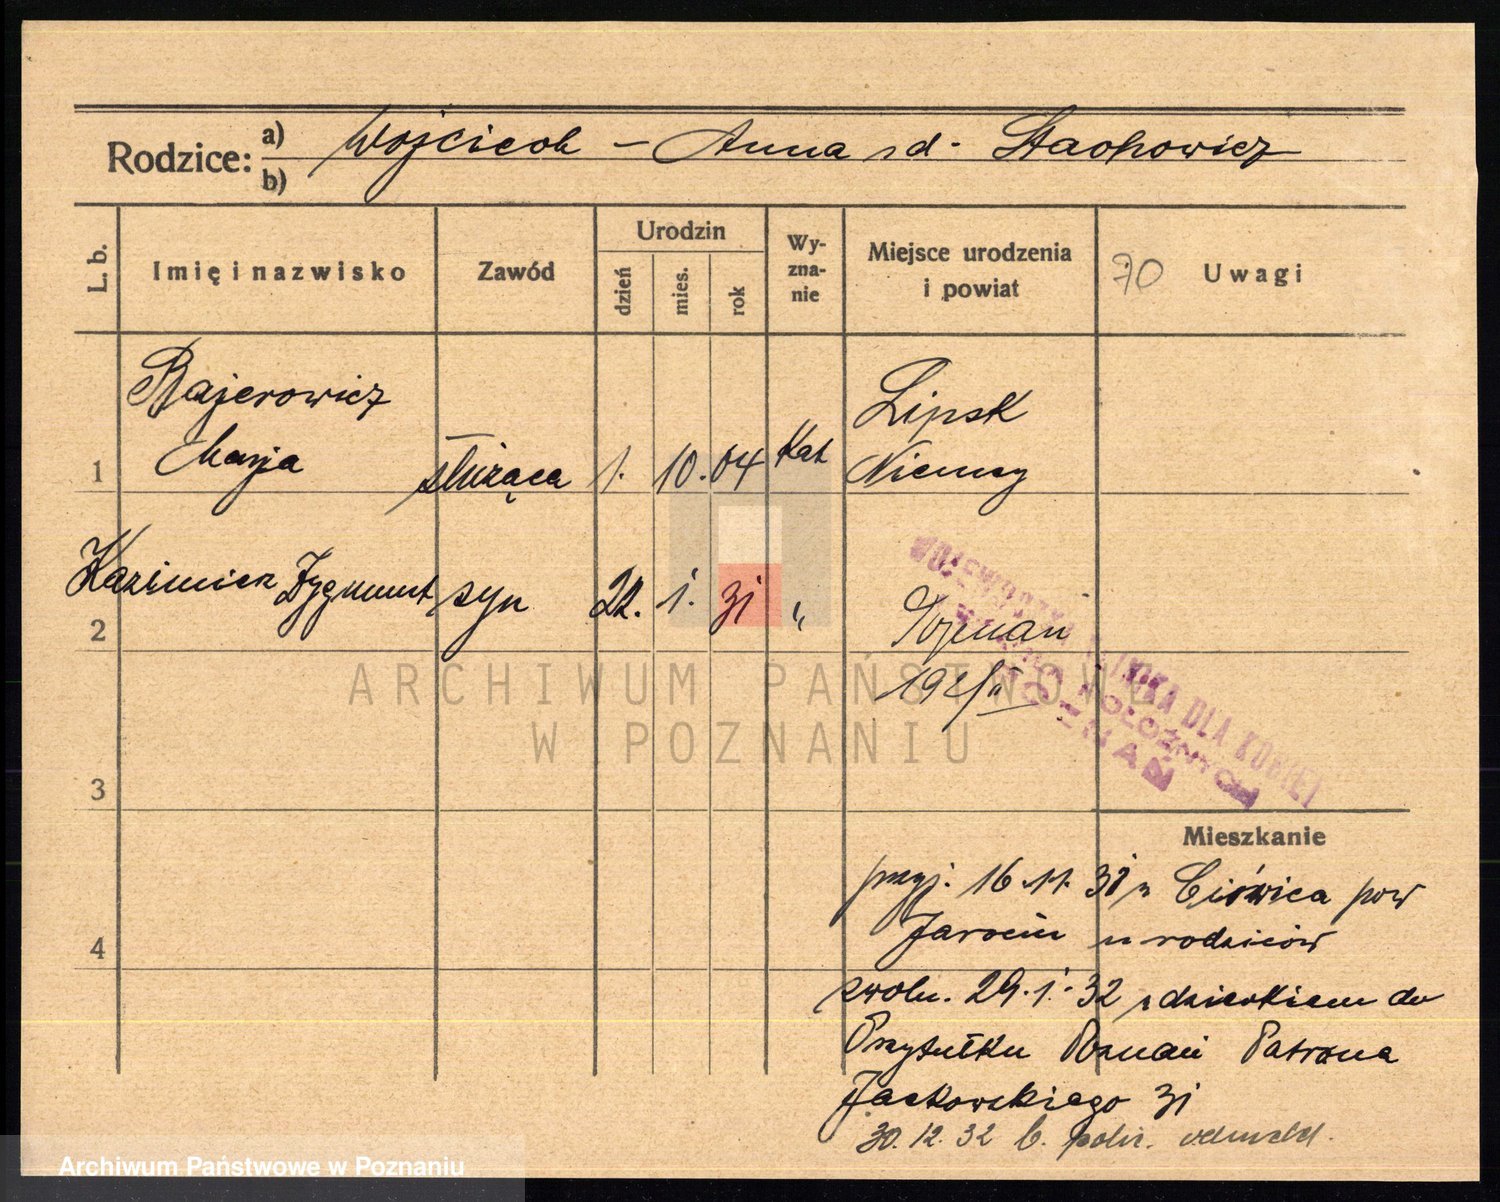 Rodzice: a) Wojciech - Anna zd. Stachowicz
b)
L. b.
Imię i nazwisko
Zawód
Urodzin
dzień
mies.
rok
Wy-
zna-
nie
Miejsce urodzenia
i powiat
70
Uwagi
Bajerowicz
Marja
1
służąca
1. 10. 04
Kat
Lipsk
Niemcy
Kazimierz Zygmunt
2
syn
22. 1. 31
"
Poznań
WOJEWÓDZKA KLINIKA DLA KOBIET
POŁOŻNYCH
POZNAŃ
3
4
Mieszkanie
przyj. 16.11. 31 z pow
Jarocin u rodziców
zwoln. 29. 1. 32 z dzieckiem do
Przytułku Poznań Patrona
Jackowskiego 31
30. 12. 32
ARCHIWUM PAŃSTWOWE
W POZNANIU
Archiwum Państwowe w Poznaniu